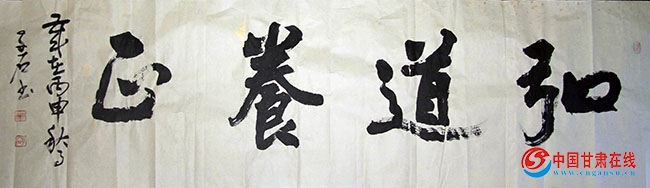 弘道養正
歲在丙申秋月
子石书
中国甘肃在线
www.cngansu.cn